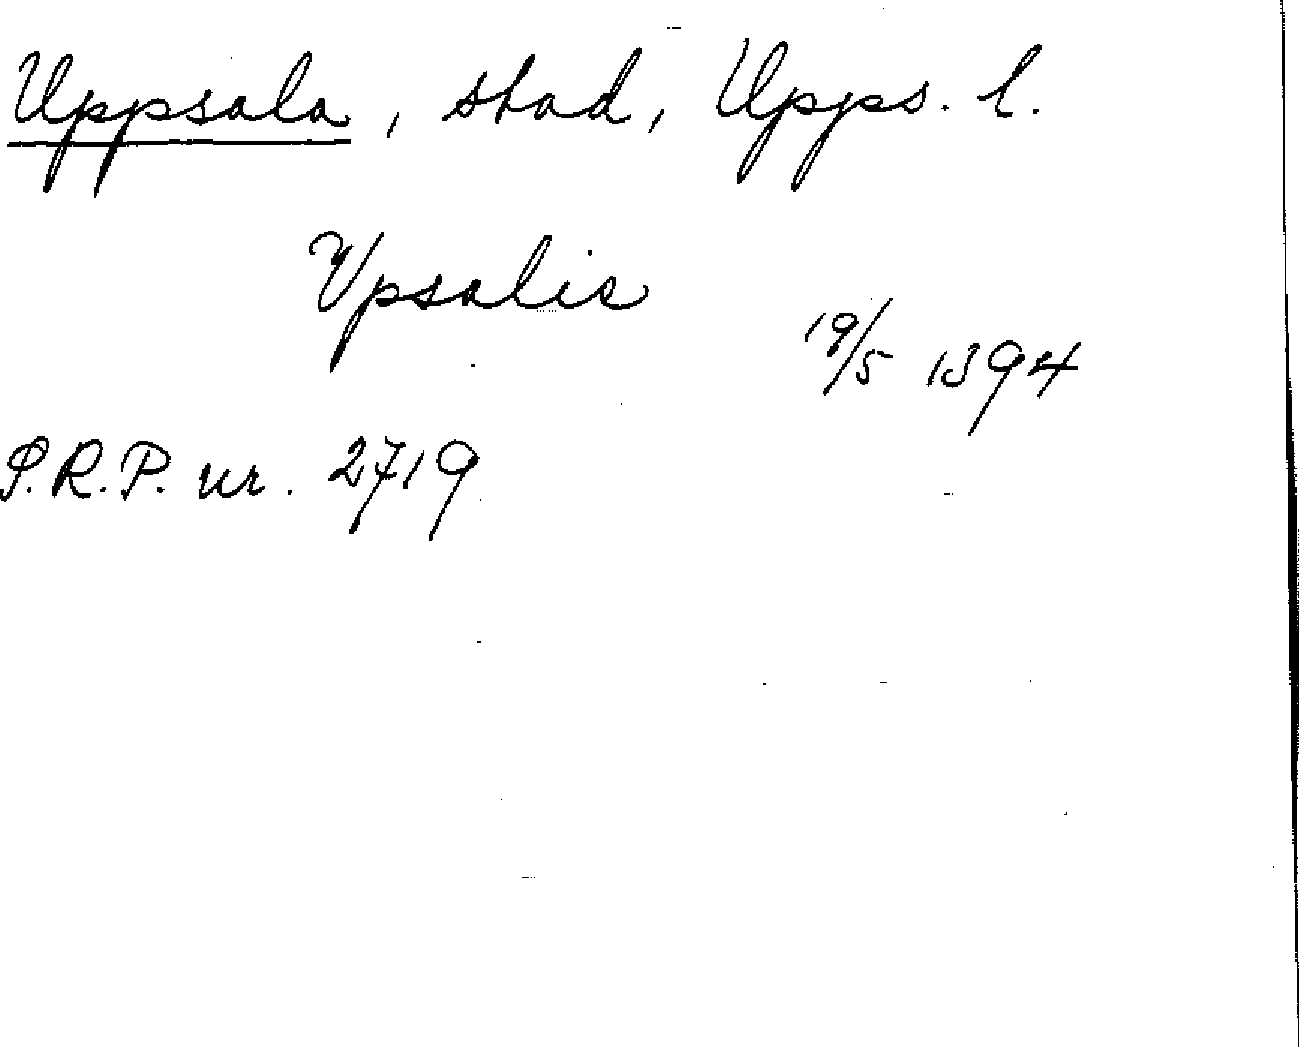 Uppsala, stad, Upps. l.
Vpsalis
19/5 1394
S.R.P. nr. 2719